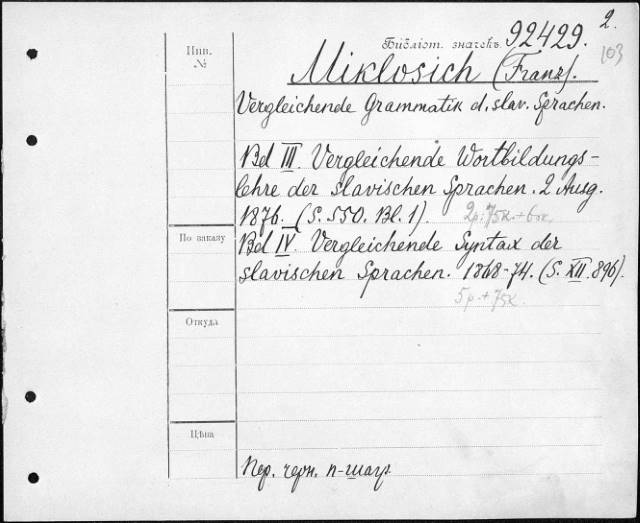 2.
Инв.
№
Библіот. значекъ. 92429.
103
Miklosich (Franz).
Vergleichende Grammatik d. slav. Sprachen.
Bd III. Vergleichende Wortbildungs-
lehre der slavischen Sprachen. 2 Ausg.
1876. (S. 550. Bl. 1). 2р. 75к. + 60к.
По заказу
Bd IV. Vergleichende Syntax der
slavischen Sprachen. 1868-74. (S. XII. 896).
5р. + 75к.
Откуда
Цѣна
Пер. черн.